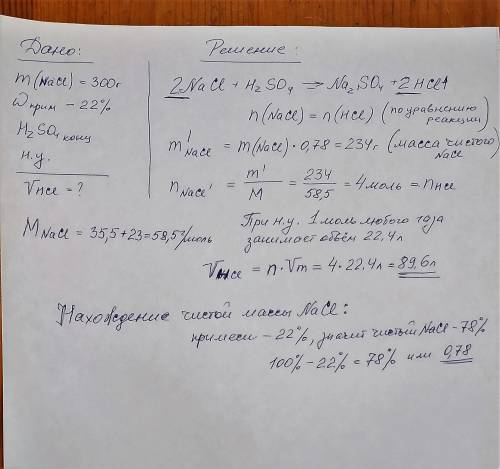 Дано:
m(NaCl) = 300г
ω прим - 22%
H₂SO₄ конц
н.у.
VHCl = ?
MNaCl = 35,5+23=58,5г/моль
Решение:
2NaCl + H₂SO₄ → Na₂SO₄ + 2HCl↑
n(NaCl) = n(HCl) (по уравнению реакции)
m'NaCl = m(NaCl)·0,78 = 234г (масса чистого NaCl)
nNaCl' = m'/M = 234/58,5 = 4моль = nHCl
При н.у. 1 моль любого газа
занимает объём 22,4л
VHCl = n·Vm = 4·22,4л = 89,6л
Нахождение чистой массы NaCl:
примеси - 22%, значит чистый NaCl - 78%
100% - 22% = 78% или 0,78